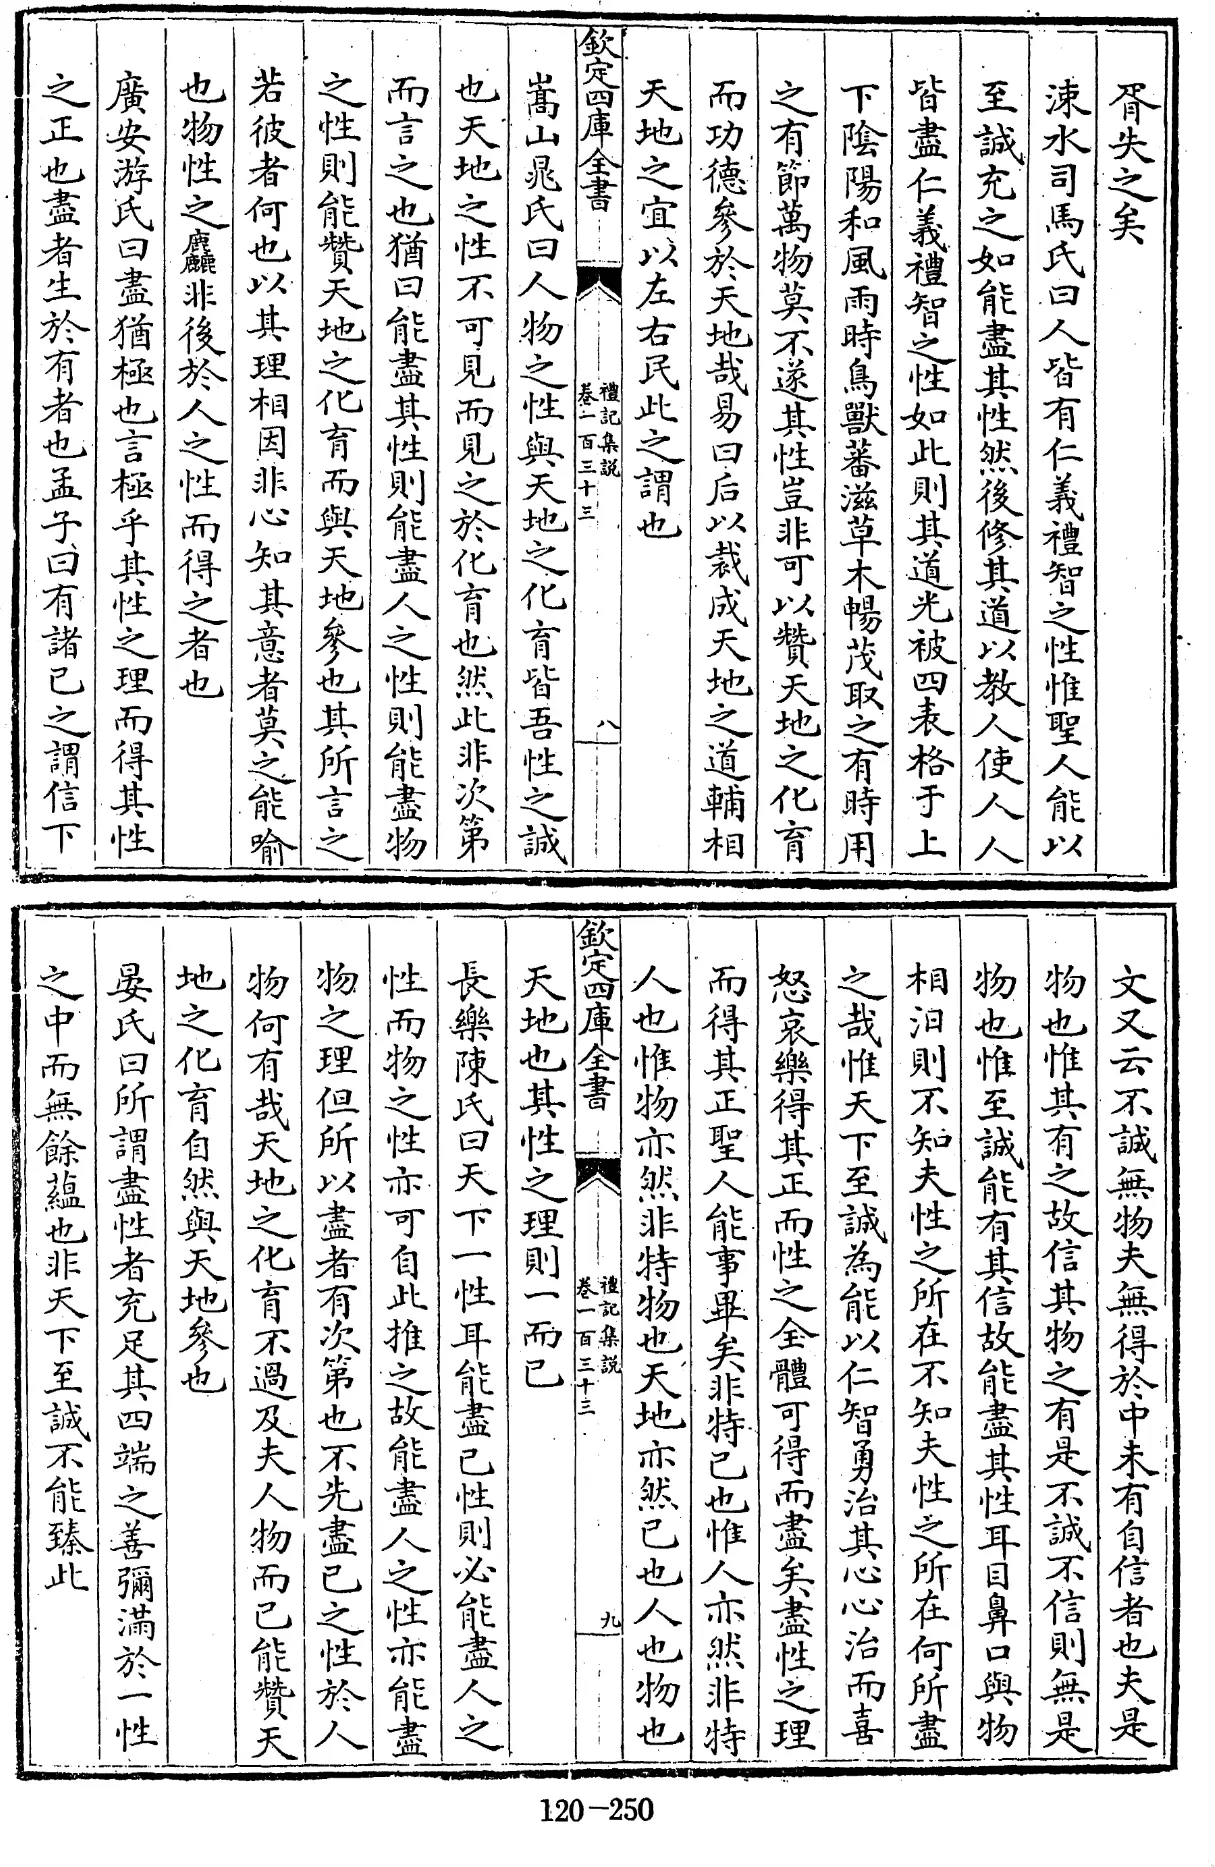 胥失之矣
涑水司馬氏曰人皆有仁義禮智之性惟聖人能以
至誠充之如能盡其性然後修其道以教人使人人
皆盡仁義禮智之性如此則其道光被四表格于上
下陰陽和風雨時鳥獸蕃滋草木暢茂取之有時用
之有節萬物莫不遂其性豈非可以贊天地之化育
而功德參於天地哉易曰后以裁成天地之道輔相
天地之宜以左右民此之謂也
欽定四庫全書
禮記集說
卷一百三十三
八
嵩山晁氏曰人物之性與天地之化育皆吾性之誠
也天地之性不可見而見之於化育也然此非次第
而言之也猶曰能盡其性則能盡人之性則能盡物
之性則能贊天地之化育而與天地參也其所言之
若彼者何也以其理相因非心知其意者莫之能喻
也物性之麤非後於人之性而得之者也
廣安游氏曰盡猶極也言極乎其性之理而得其性
之正也盡者生於有者也孟子曰有諸已之謂信下
文又云不誠無物夫無得於中未有自信者也夫是
物也惟其有之故信其物之有是不誠不信則無是
物也惟至誠能有其信故能盡其性耳目鼻口與物
相汩則不知夫性之所在不知夫性之所在何所盡
之哉惟天下至誠為能以仁智勇治其心心治而喜
怒哀樂得其正而性之全體可得而盡矣盡性之理
而得其正聖人能事畢矣非特已也惟人亦然非特
人也惟物亦然非特物也天地亦然已也人也物也
欽定四庫全書
禮記集說
卷一百三十三
九
天地也其性之理則一而已
長樂陳氏曰天下一性耳能盡已性則必能盡人之
性而物之性亦可自此推之故能盡人之性亦能盡
物之理但所以盡者有次第也不先盡已之性於人
物何有哉天地之化育不過及夫人物而已能贊天
地之化育自然與天地參也
晏氏曰所謂盡性者充足其四端之善彌滿於一性
之中而無餘蘊也非天下至誠不能臻此
120-250